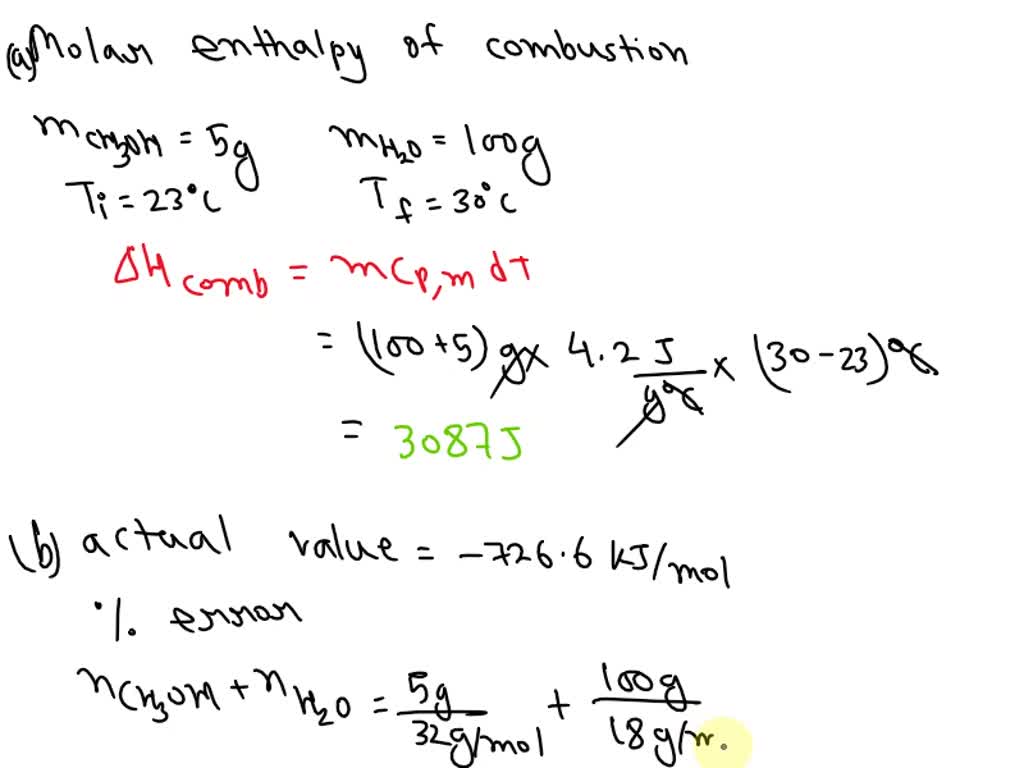 (a) Molar enthalpy of combustion
mCH₃OH = 5g mH₂O = 100g
Ti = 23°C Tf = 30°C
ΔHcomb = mCp,m dT
= (100+5) g × 4.2 J/g°C × (30-23)°C
= 3087J
(b) actual value = -726.6 kJ/mol
% error
nCH₃OH + nH₂O = 5g/32g/mol + 100g/18g/m